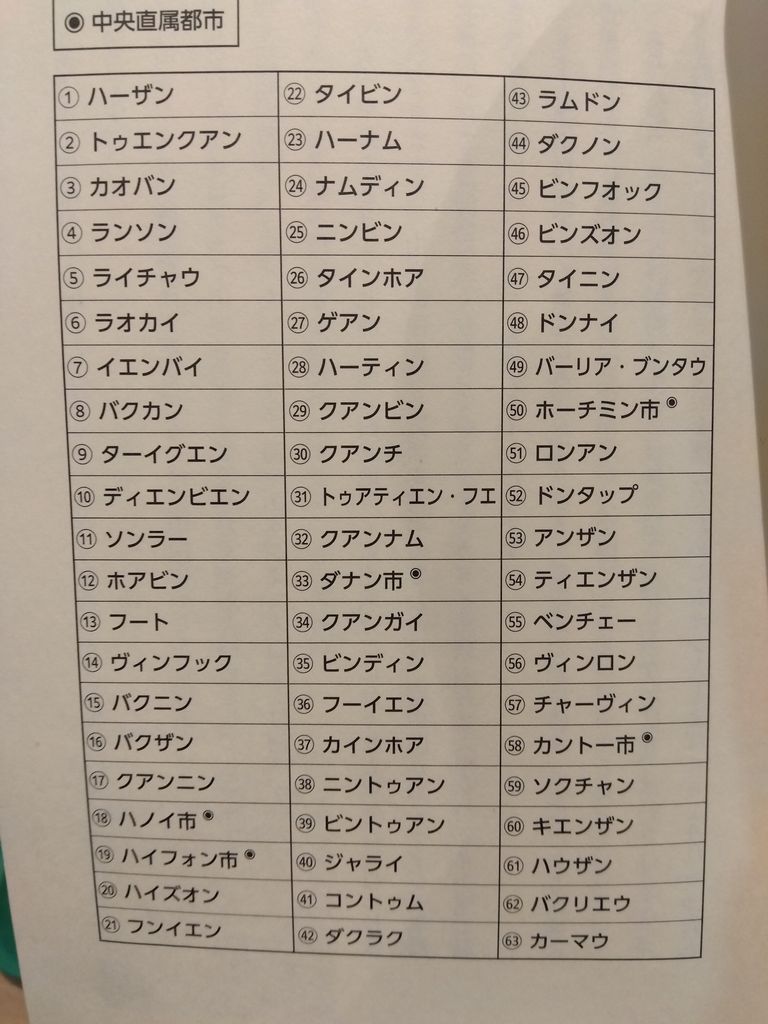 ◉ 中央直属都市
① ハーザン
② トゥエンクアン
③ カオバン
④ ランソン
⑤ ライチャウ
⑥ ラオカイ
⑦ イエンバイ
⑧ バクカン
⑨ ターイグエン
⑩ ディエンビエン
⑪ ソンラー
⑫ ホアビン
⑬ フート
⑭ ヴィンフック
⑮ バクニン
⑯ バクザン
⑰ クアンニン
⑱ ハノイ市◉
⑲ ハイフォン市◉
⑳ ハイズオン
㉑ フンイエン
㉒ タイビン
㉓ ハーナム
㉔ ナムディン
㉕ ニンビン
㉖ タインホア
㉗ ゲアン
㉘ ハーティン
㉙ クアンビン
㉚ クアンチ
㉛ トゥアティエン・フエ
㉜ クアンナム
㉝ ダナン市◉
㉞ クアンガイ
㉟ ビンディン
㊱ フーイエン
㊲ カインホア
㊳ ニントゥアン
㊴ ビントゥアン
㊵ ジャライ
㊶ コントゥム
㊷ ダクラク
㊸ ラムドン
㊹ ダクノン
㊺ ビンフオック
㊻ ビンズオン
㊼ タイニン
㊽ ドンナイ
㊾ バーリア・ブンタウ
㊿ ホーチミン市◉
51 ロンアン
52 ドンタップ
53 アンザン
54 ティエンザン
55 ベンチェー
56 ヴィンロン
57 チャーヴィン
58 カントー市◉
59 ソクチャン
60 キエンザン
61 ハウザン
62 バクリエウ
63 カーマウ